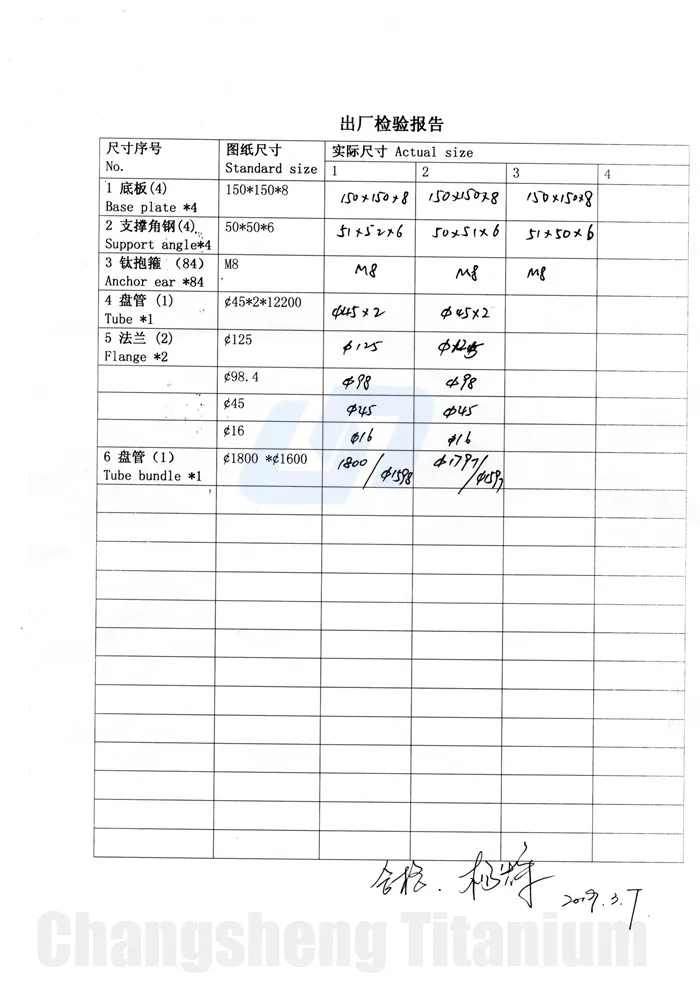 出厂检验报告
尺寸序号 图纸尺寸 实际尺寸 Actual size
No. Standard size 1 2 3 4
1 底板(4) 150*150*8 150×150×8 150×150×8 150×150×8
Base plate *4
2 支撑角钢(4) 50*50*6 51×52×6 50×51×6 51×50×6
Support angle*4
3 钛抱箍 (84) M8 M8 M8 M8
Anchor ear *84
4 盘管 (1) ¢45*2*12200 φ45×2 φ45×2
Tube *1
5 法兰 (2) ¢125 φ125
Flange *2
¢98.4 φ98 φ98
¢45 φ45 φ45
¢16 φ16 φ16
6 盘管 (1) ¢1800 *¢1600 1800/φ1598 φ1797/φ1597
Tube bundle *1
合格.
2019.3.7
Changsheng Titanium